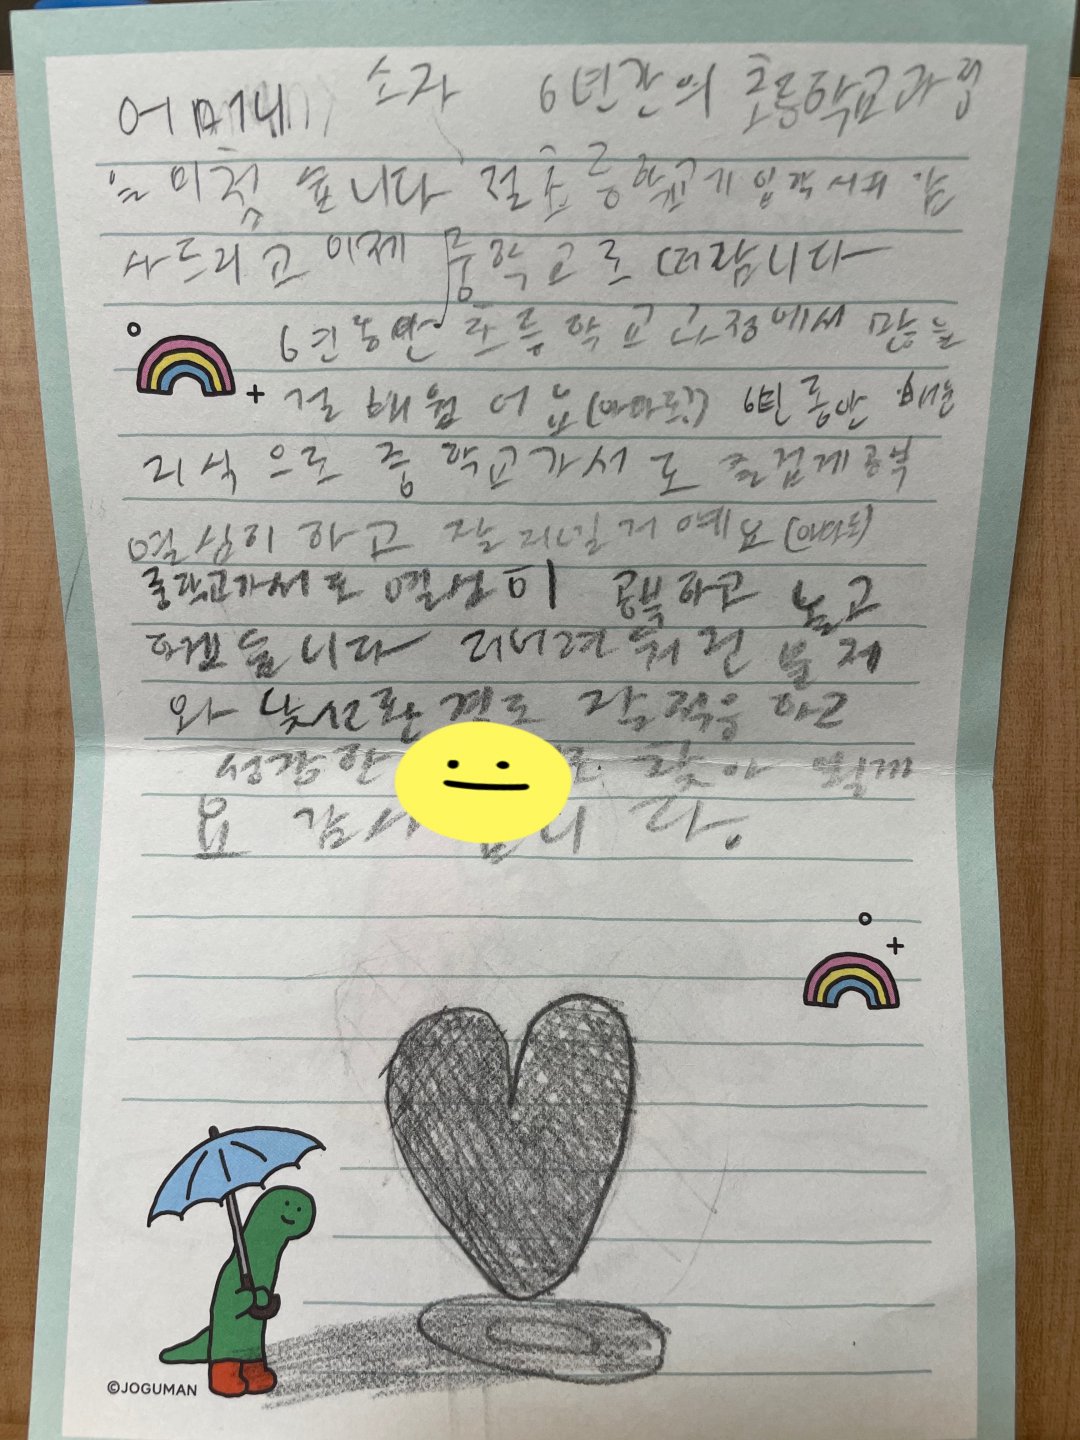 어머니 소자 6년간의 초등학교과정
을 마쳤습니다 절 초등학교 입학시켜 감
사드리고 이제 중학교로 떠납니다
6년동안 초등학교 과정에서 많은
걸 배웠어요(아마도?) 6년 동안 배운
지식으로 중학교가서도 즐겁게 공부
열심히 하고 잘 지낼거예요(아마도)
중학교가서도 열심히 공부하고 놀고
하겠습니다 어려워진 문제
와 낯선환경도 잘 적응하고
성장한 로 찾아 뵐께
요 감사 니다.
©JOGUMAN